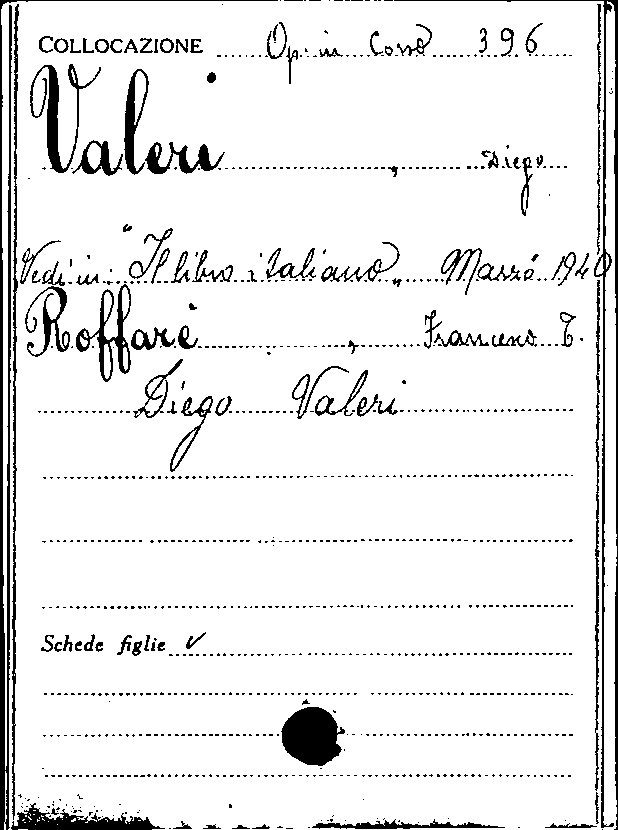 COLLOCAZIONE Op. in Corso 396
Valeri , Diego
Vedi in: "Il libro italiano„ Marzo 1940
Roffarè , Francesco T.
Diego Valeri
Schede figlie ✓